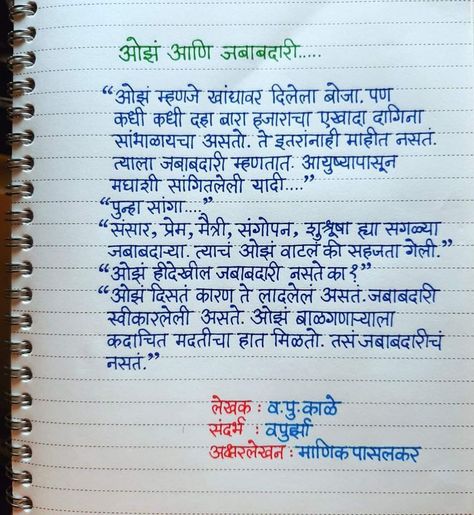 ओझं आणि जबाबदारी.....
“ओझं म्हणजे खांद्यावर दिलेला बोजा. पण
कधी कधी दहा बारा हजाराचा एखादा दागिना
सांभाळायचा असतो. ते इतरांनाही माहीत नसतं.
त्याला जबाबदारी म्हणतात. आयुष्यापासून
मघाशी सांगितलेली यादी....”
“पुन्हा सांगा....”
“संसार, प्रेम, मैत्री, संगोपन, शुश्रूषा ह्या सगळ्या
जबाबदाऱ्या. त्याचं ओझं वाटलं की सहजता गेली.”
“ओझं हीदेखील जबाबदारी नसते का?”
“ओझं दिसतं कारण ते लादलेलं असतं. जबाबदारी
स्वीकारलेली असते. ओझं बाळगणाऱ्याला
कदाचित मदतीचा हात मिळतो. तसं जबाबदारीचं
नसतं.”
लेखक : व.पु.काळे
संदर्भ : वपुर्झा
अक्षरलेखन : माणिक पासलकर